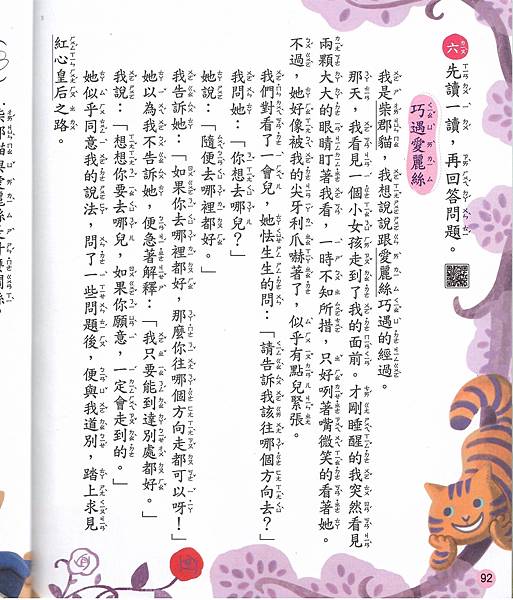 六 先讀一讀，再回答問題。
巧遇愛麗絲
我是柴郡貓，我想說說跟愛麗絲巧遇的經過。
那天，我看見一個小女孩走到了我的面前。才剛睡醒的我突然看見
兩顆大大的眼睛盯著我看，一時不知所措，只好咧著嘴微笑的看著她。
不過，她好像被我的尖牙利爪嚇著了，似乎有點兒緊張。
我們對看了一會兒，她怯生生的問：「請告訴我該往哪個方向去？」
我問她：「你想去哪兒？」
她說：「隨便去哪裡都好。」
我告訴她：「如果你去哪裡都好，那麼你往哪個方向走都可以呀！」
她以為我不告訴她，便急著解釋：「我只要能到達別處都好。」
我說：「想想你要去哪兒，如果你願意，一定會走到的。」
她似乎同意我的說法，問了一些問題後，便與我道別，踏上求見
紅心皇后之路。
92